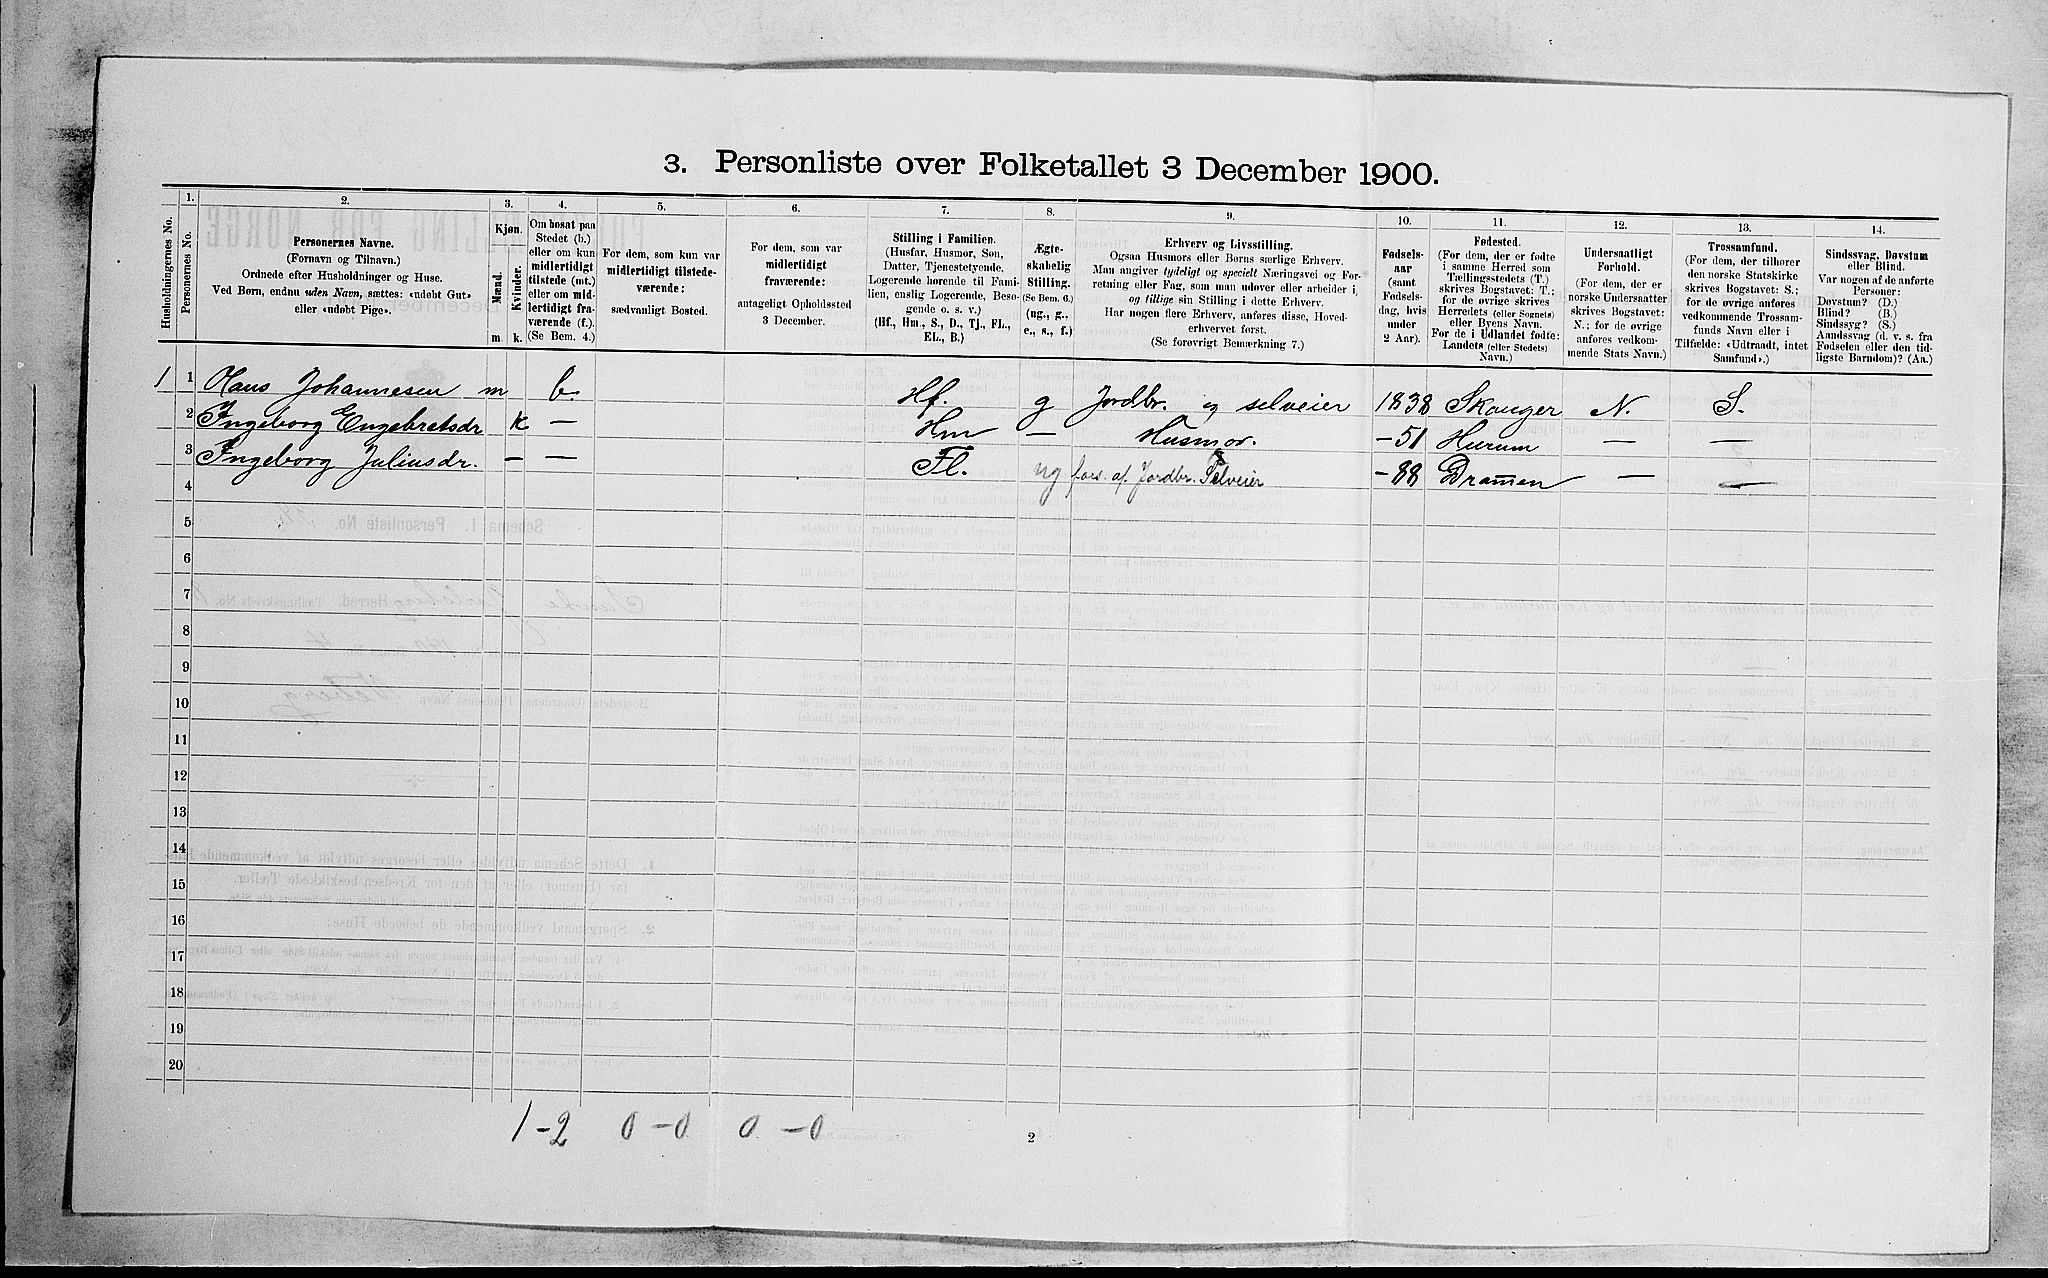 3. Personliste over Folketallet 3 December 1900.
Husholdningernes No.
1.
Personernes No.
2.
Personernes Navne.
(Fornavn og Tilnavn.)
Ordnede efter Husholdninger og Huse.
Ved Børn, endnu uden Navn, sættes: «udøbt Gut»
eller «udøbt Pige».
3.
Kjøn.
Mænd.
Kvinder.
m. k.
4.
Om bosat paa
Stedet (b.)
eller om kun
midlertidigt
tilstede (mt.)
eller om mid-
lertidigt fra-
værende (f.).
(Se Bem. 4.)
5.
For dem, som kun var
midlertidigt tilstede-
værende:
sædvanligt Bosted.
6.
For dem, som var
midlertidigt
fraværende:
antageligt Opholdssted
3 December.
7.
Stilling i Familien.
(Husfar, Husmor, Søn,
Datter, Tjenestetyende,
Logerende hørende til Fami-
lien, enslig Logerende, Besø-
gende o. s. v.)
(Hf., Hm., S., D., Tj., FL.,
EL., B.)
8.
Ægte-
skabelig
Stilling.
(Se Bem. 6.)
(ug., g.,
e., s., f.)
9.
Erhverv og Livsstilling.
Ogsaa Husmors eller Børns særlige Erhverv.
Man angiver tydeligt og specielt Næringsvei og For-
retning eller Fag, som man udøver eller arbeider i,
og tillige sin Stilling i dette Erhverv.
Har nogen flere Erhverv, anføres disse, Hoved-
erhvervet først.
(Se forøvrigt Bemærkning 7.)
10.
Fødsels-
aar
(samt
Fødsels-
dag, hvis
under
2 Aar).
11.
Fødested.
(For dem, der er fødte
i samme Herred som
Tællingsstedets (T.)
skrives Bogstavet: T.;
for de øvrige skrives
Herredets (eller Sognets)
eller Byens Navn.
For de i Udlandet fødte:
Landets (eller Stedets)
Navn.)
12.
Undersaatligt
Forhold.
(For dem, der er
norske Undersaatter
skrives Bogstavet:
N.; for de øvrige
anføres vedkom-
mende Stats Navn.)
13.
Trossamfund.
(For dem, der tilhører
den norske Statskirke
skrives Bogstavet: S.;
for de øvrige anføres
vedkommende Trossam-
funds Navn eller i
Tilfælde: «Udtraadt, intet
Samfund».)
14.
Sindssvag, Døvstum
eller Blind.
Var nogen af de anførte
Personer:
Døvstum? (D.)
Blind? (B.)
Sindssyg? (S.)
Aandssvag (d. v. s. fra
Fødselen eller den tid-
ligste Barndom)? (Aa.)
1 1 Hans Johannesen m b. Hf. g Jordbr. og selveier 1838 Skauger N. S.
2 Ingeborg Engebretsdr k — Hm — Husmor. -51 Hurum — —
3 Ingeborg Juliusdr. — — Fl. ug fors. af Jordbr. Selveier -88 Dramen — —
4
5
6
7
8
9
10
11
12
13
14
15
16
17
18
19
20
1-2 0-0 0-0
2